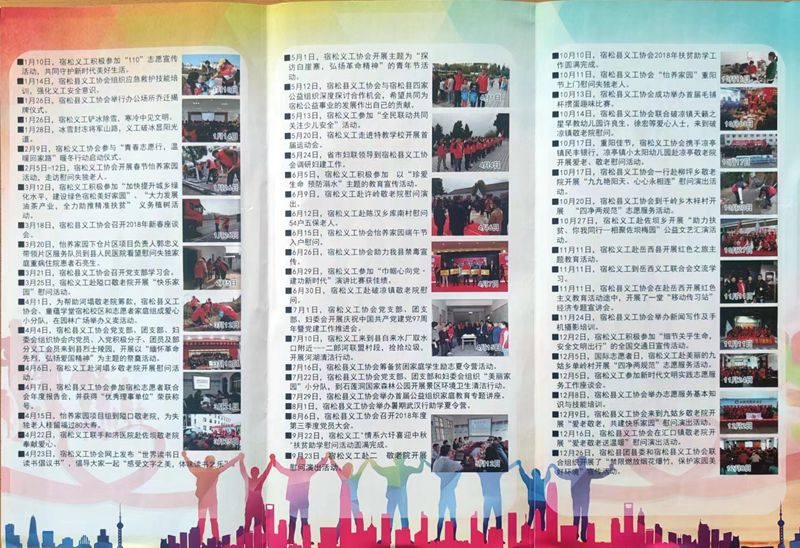 ■1月10日，宿松义工积极参加“110”志愿宣传
活动，共同守护新时代美好生活。
■1月14日，宿松县义工协会组织应急救护技能培
训，强化义工安全意识。
■1月26日，宿松县义工协会举行办公场所乔迁揭
牌仪式。
■1月26日，宿松义工铲冰除雪，寒冷中见文明。
■1月28日，冰雪封冻将军山路，义工破冰显阳光
道。
■2月9日，宿松义工协会参与“青春志愿行，温
暖回家路”暖冬行动启动仪式。
■2月5日-12日，宿松县义工协会开展春节怡养家园
活动，走访慰问失独老人。
■3月12日，宿松义工积极参加“加快提升城乡绿
化水平，建设绿色宿松美好家园”、“大力发展
油茶产业，全力助推精准扶贫” 义务植树活
动。
■3月18日，宿松县义工协会召开2018年新春座谈
会。
■3月20日，怡养家园下仓片区项目负责人郭忠义
带领片区服务队员到县人民医院看望慰问失独家
庭重病住院患者石亮生。
■3月21日，宿松县义工协会召开党支部学习会。
■3月25日，宿松义工赴隘口敬老院开展“快乐家
园”慰问活动。
■4月1日，为帮助河塌敬老院筹款，宿松县义工
协会、童蕴学堂宿松校区和志愿者家庭组成爱心
小分队，在园林广场举办义卖活动。
■4月4日，宿松县义工协会党支部、团支部、妇
委会组织协会内党员、入党积极分子、团员及部
分义工会员来到县烈士陵园，开展以“缅怀革命
先烈，弘扬爱国精神”为主题的祭奠活动。
■4月6日，宿松县义工赴河塌乡敬老院开展慰问活
动。
■4月7日，宿松县义工协会参加宿松志愿者联合
会年度报告会，并获得“优秀理事单位”荣获称
号。
■4月15日，怡养家园项目组到隘口敬老院，为失
独老人桂留福过80大寿。
■4月22日，宿松义工联手和济医院赴佐坝敬老院
奉献爱心。
■4月23日，宿松义工协会网上发布“世界读书日
读书倡议书”，倡导大家一起“感受文字之美，体味读书之乐”
■5月1日，宿松县义工协会开展主题为“探
访白崖寨，弘扬革命精神”的青年节活
动。
■5月12日，宿松县义工协会与宿松县四家
公益组织深度探讨合作机会，希望共同为
宿松公益事业的发展作出自己的贡献。
■5月13日，宿松义工参加“全民联动共同
关注少儿安全”活动。
■5月20日，宿松义工走进特教学校开展首
届运动会。
■5月24日，省市妇联领导到宿松县义工协
会调研妇建工作。
■6月5日，宿松县义工积极参加 以“珍爱
生命 预防溺水”主题的教育宣传活动。
■6月9日，宿松县义工赴许岭敬老院慰问演
出。
■6月12日，宿松义工赴陈汉乡库南村慰问
54户五保老人。
■6月15日，宿松义工协会怡养家园端午节
入户慰问。
■6月26日，宿松县义工协会助力我县禁毒宣
传。
■6月29日，宿松县义工参加“巾帼心向党·
建功新时代”演讲比赛获佳绩。
■6月30日，宿松义工赴破凉镇敬老院慰
问。
■7月1日，宿松县义工协会党支部、团支
部、妇委会开展庆祝中国共产党建党97周
年暨党建工作推进会。
■7月10日，宿松义工来到县自来水厂取水
口附近——二郎河联盟村段，捡拾垃圾，
开展河湖清洁行动。
■7月16日，宿松县义工协会筹备贫困家庭学生励志夏令营活动。
■7月22日，宿松县义工协会党支部、团支部和妇委会组织“美丽家
园”小分队，到石莲洞国家森林公园开展景区环境卫生清洁行动。
■7月29日，宿松县义工协会举办首届公益组织家庭教育专题讲座。
■8月1日，宿松县义工协会举办暑期武汉行助学夏令营。
■8月6日，宿松县义工协会召开2018年度
第三季度党员大会。
■9月22日，宿松义工“情系六圩喜迎中秋
”扶贫助学慰问活动圆满完成。
■9月23日，宿松义工赴二 敬老院开展
慰问演出活动。
■10月10日，宿松县义工协会2018年扶贫助学工
作圆满完成。
■10月10日，宿松县义工协会“怡养家园”重阳
节上门慰问失独老人。
■10月13日，宿松县义工协会成功举办首届毛铺
杯掼蛋趣味比赛。
■10月14日，宿松县义工协会联合破凉镇天籁之
星早教幼儿园许良生、徐宏等爱心人士，来到破
凉镇敬老院慰问。
■10月17日，重阳佳节，宿松义工协会携手凉亭
镇民丰银行、凉亭镇小太阳幼儿园赴凉亭敬老院
开展爱老、敬老慰问活动。
■10月17日，宿松县义工协会一行赴柳坪乡敬老
院开展“九九艳阳天、心心永相连”慰问演出活
动。
■10月20日，宿松县义工协会到千岭乡木梓村开
展 “四净两规范”志愿服务活动。
■10月27日，宿松义工赴佐坝乡开展“助力扶
贫、你我同行一相聚佐坝梅园”公益文艺汇演活
动。
■11月11日，宿松县义工赴岳西县开展红色之旅主
题教育活动。
■11月11日，宿松县义工到岳西义工联合会交流学
习。
■11月11日，宿松县义工协会在赴岳西开展红色
主义教育活动途中，开展了一堂“移动传习站”
经济专题宣讲会。
■11月24日，宿松县义工协会举办新闻写作及手
机摄影培训。
■12月2日，宿松县义工积极参加“细节关乎生命，
安全文明出行”的全国交通日宣传活动。
■12月5日，国际志愿者日，宿松县义工赴美丽的九
姑乡单岭村开展“四净两规范”志愿服务活动。
■12月5日，宿松县义工参加新时代文明实践志愿服
务工作座谈会。
■12月8日，宿松县义工协会举办志愿服务基本知
识与技能培训。
■12月9日，宿松县义工协会来到九姑乡敬老院开
展“爱老敬老，共建快乐家园”慰问演出活动。
■12月16日，宿松义工协会在汇口镇敬老院开展
“爱老敬老送温暖”慰问演出活动。
■12月26日，宿松县团县委和宿松县义工协会联
合组织开展了“禁限燃放烟花爆竹，保护家园美
好环境”宣传活动。